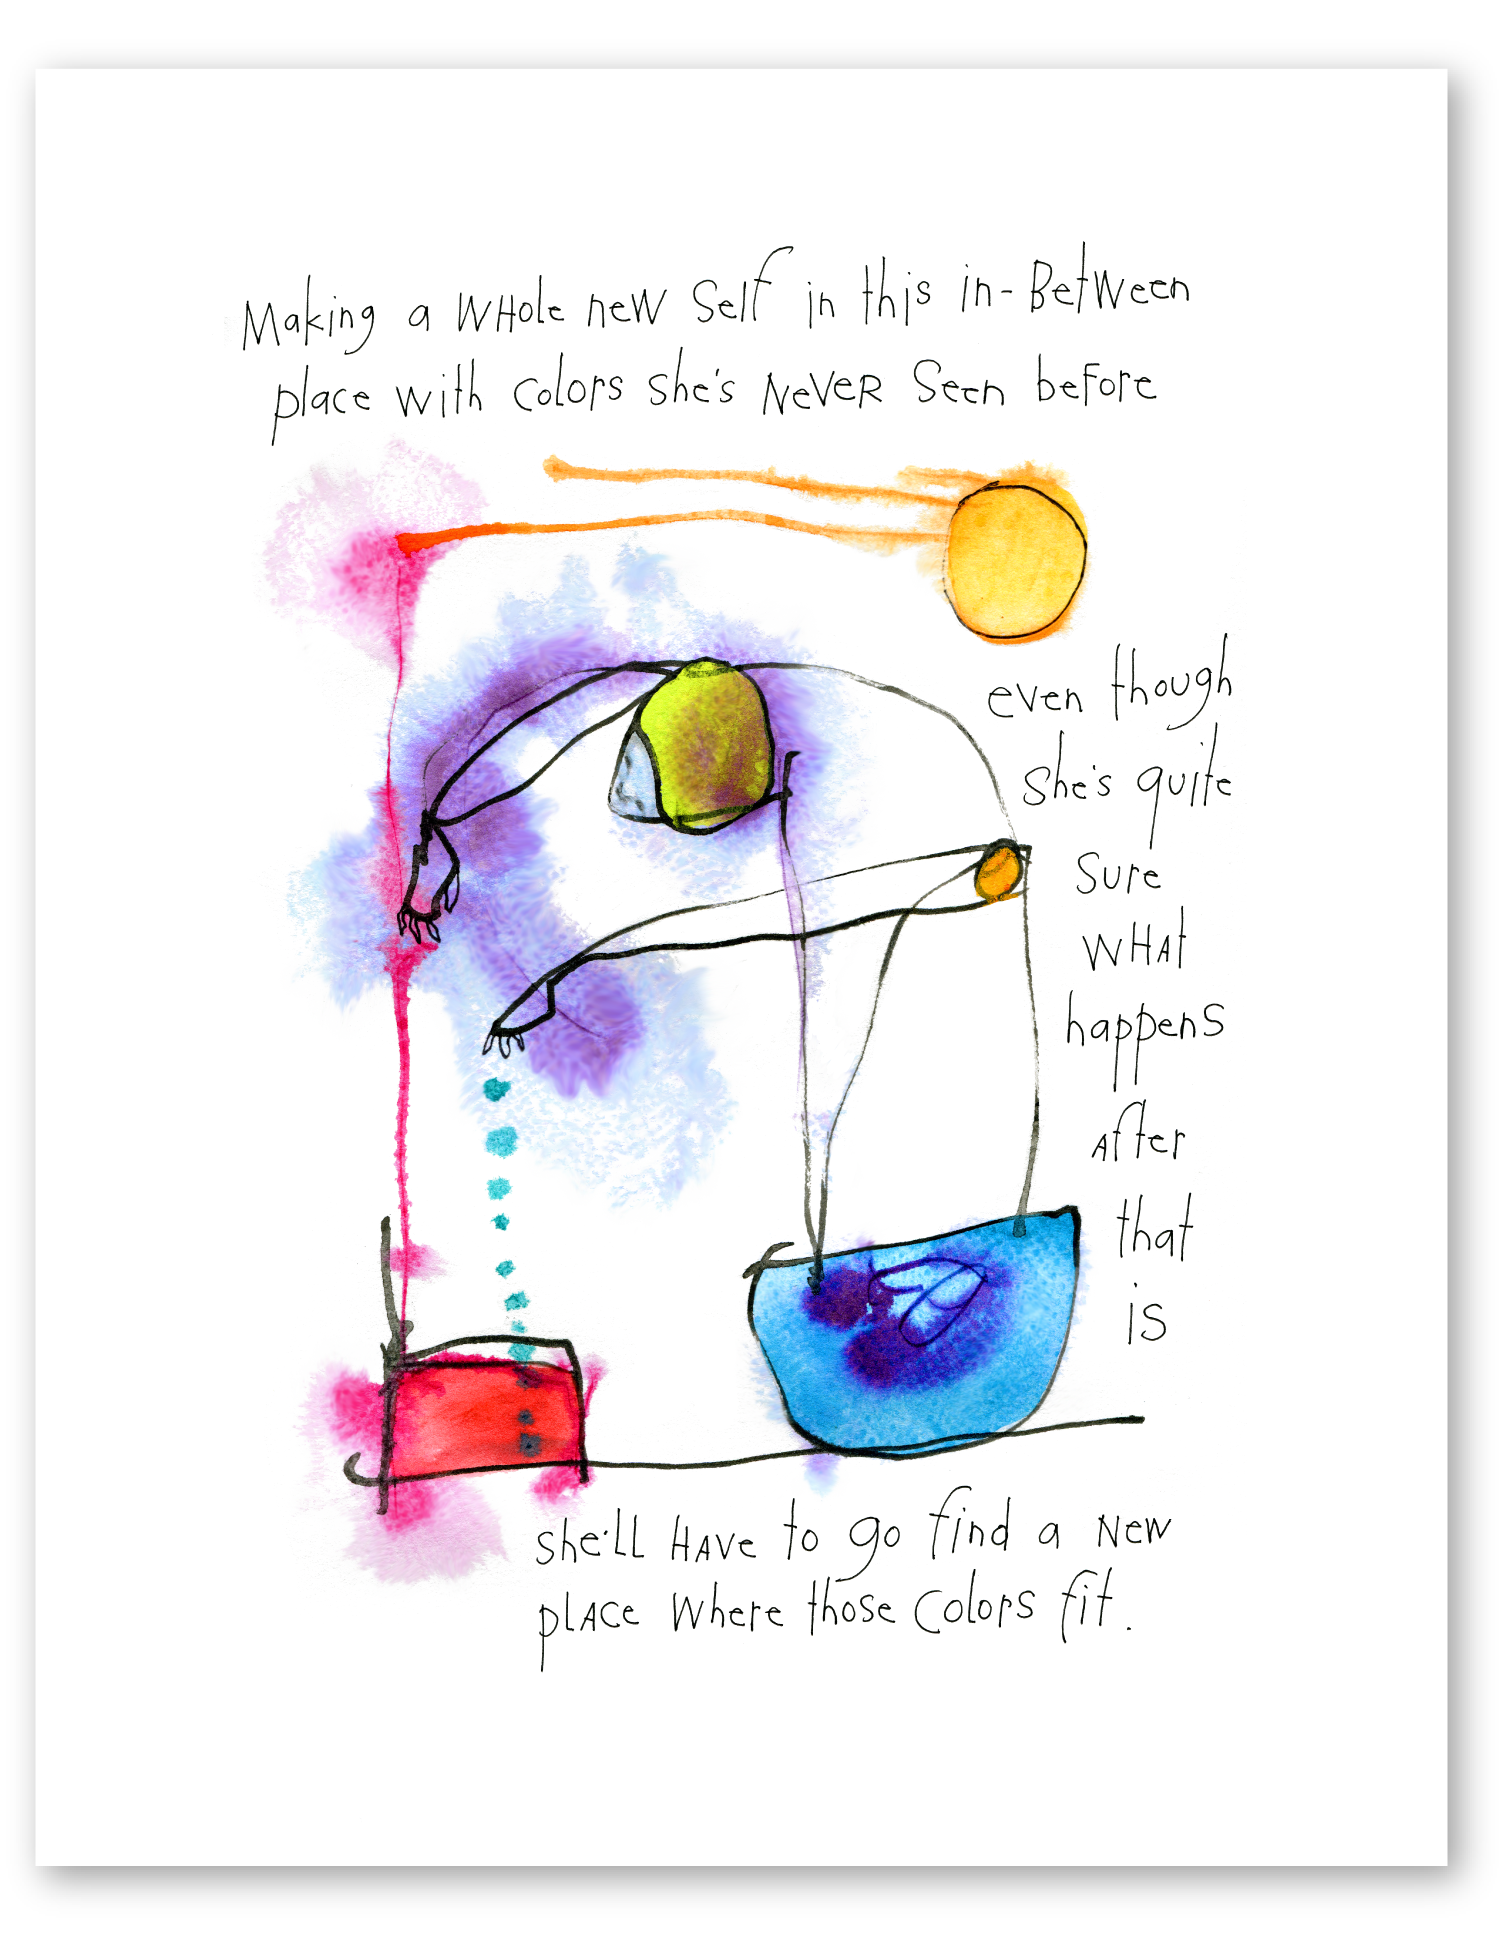 Making a WHole neW Self in this in-BetWeen
place with colors she's NeVeR Seen before
even though
she's quite
sure
WHAt
happens
After
that
is
she'll HAVe to go find a New
plAce Where those Colors fit.